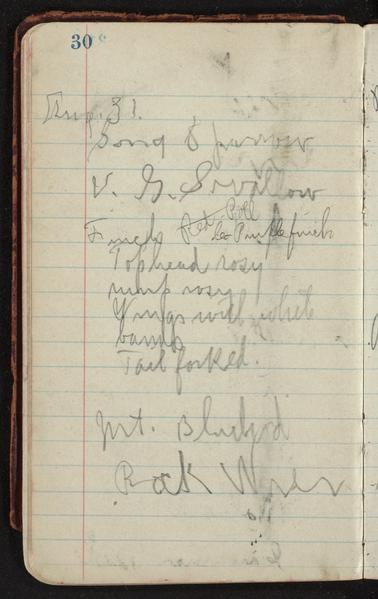 30
Aug. 31.
Song Sparrow
V. G. Swallow
Finch Red-Poll
or Purple finch
Top head rosy
rump rosy
Wings with white
bands
Tail forked.
Mt. Bluebird
Rock Wren